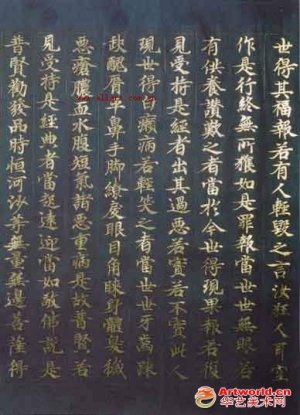 世得其福報若有人輕毀之言汝狂人耳空
作是行終無所獲如是罪報當世世無眼若
有供養讚歎之者當於今世得現果報若復
見受持是經者出其過惡若實若不實此人
現世得白癩病若輕笑之者當世世牙齒踈
缺醜脣平鼻手脚繚戾眼目角睞身體臭穢
惡瘡膿血水腹短氣諸惡重病是故普賢若
見受持是經典者當起遠迎當如敬佛說是
普賢勸發品時恒河沙等無量無邊菩薩得
Artworld.cn
华艺美术网